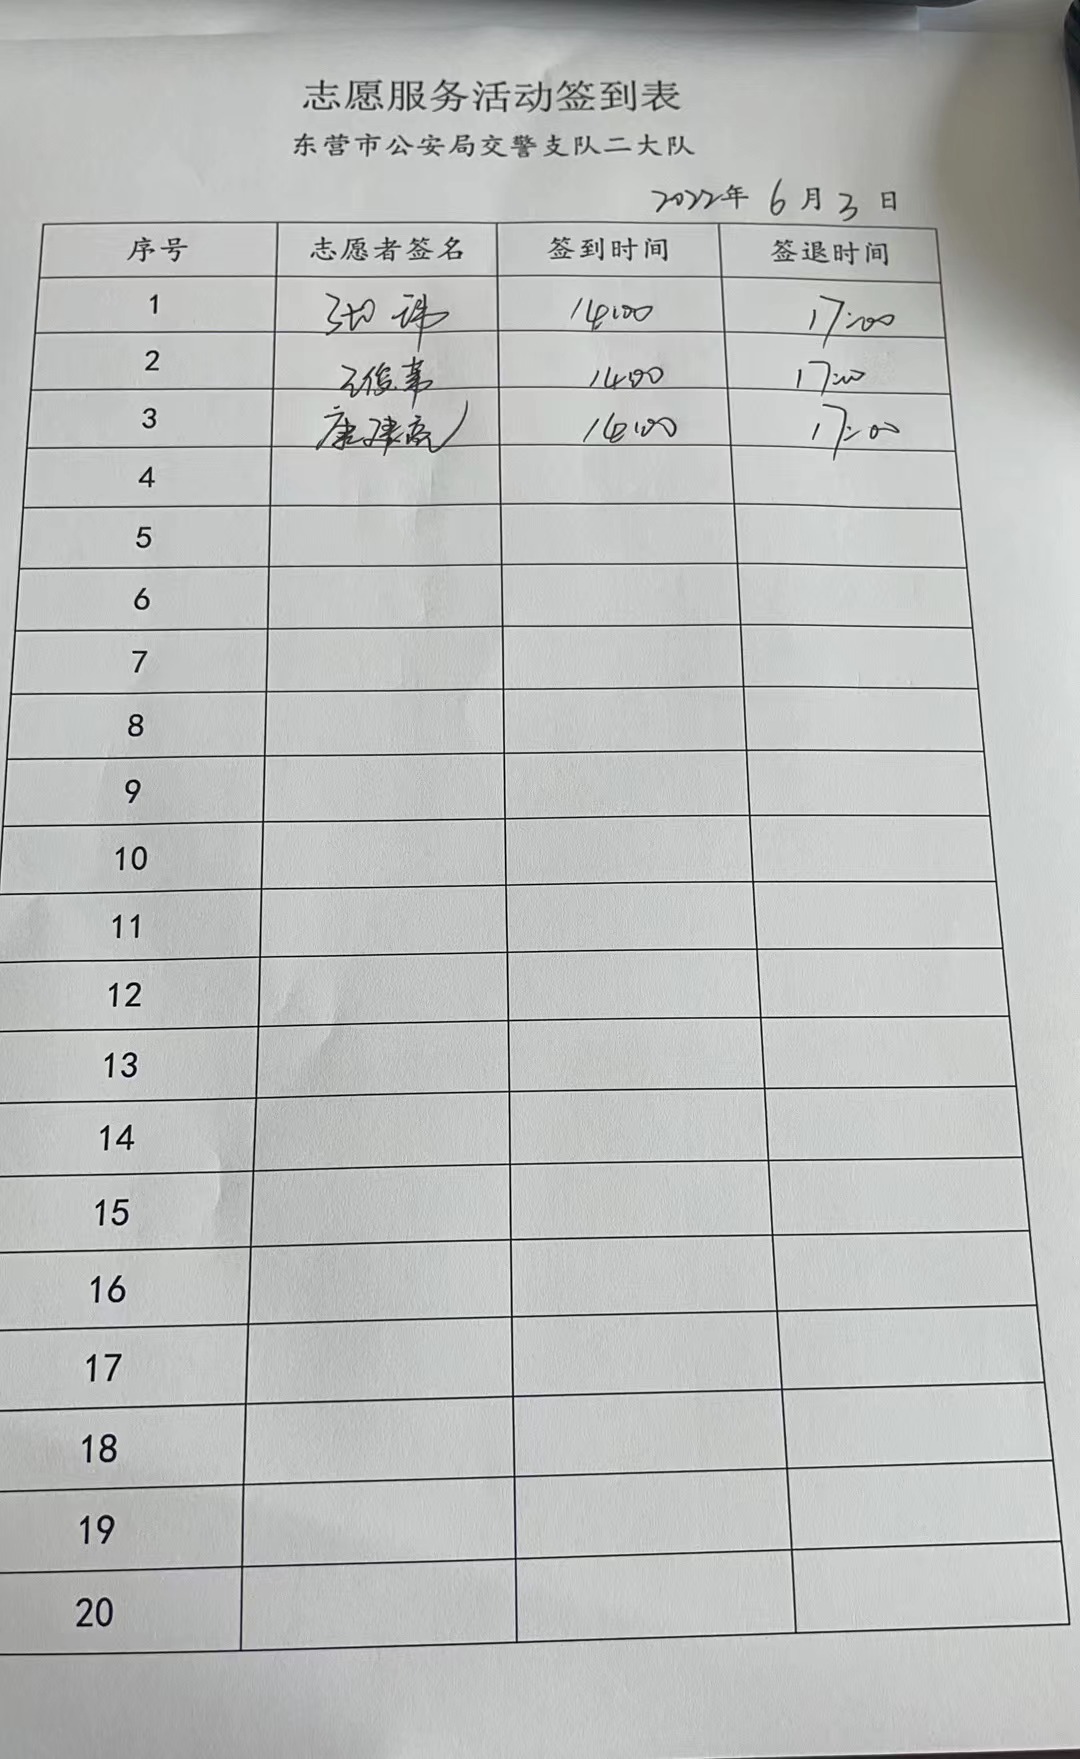 志愿服务活动签到表
东营市公安局交警支队二大队
2022年 6月3日
序号 志愿者签名 签到时间 签退时间
1 14:00 17:00
2 14:00 17:00
3 14:00 17:00
4
5
6
7
8
9
10
11
12
13
14
15
16
17
18
19
20